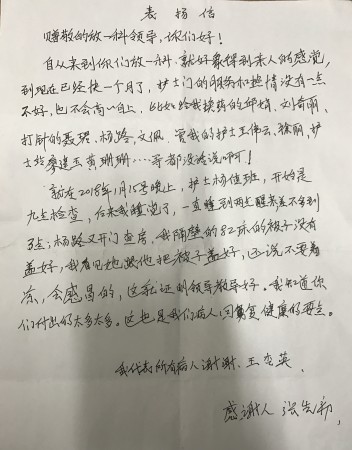 表扬信
尊敬的放一科领导，你们好！
自从来到你们放一科，就好象得到亲人的感觉，
到现在已经快一个月了，护士们的服务和热情没有一点
不好，也不会高人一自上，比如给我换药的邱婧，刘奇丽，
打针的聂琛、杨路，文佩，管我的护士王伟云、徐丽，护
士长廖建玉黄珊珊……等都没话说啊！
就在2018年1月15号晚上，护士杨值班，开始是
九点检查，后来我睡觉了，一直睡到两点醒来差不多到
3点；杨路又开门查房，我隔壁的82床的被子没有
盖好，我看见她跟他把被子盖好，还说不要着
凉，会感冒的，这就证明领导教导好。我知道你
们付出的太多太多。这也是我们病人回复健康的要点。
我代表所有病人谢谢、王奎英、
感谢人 张先